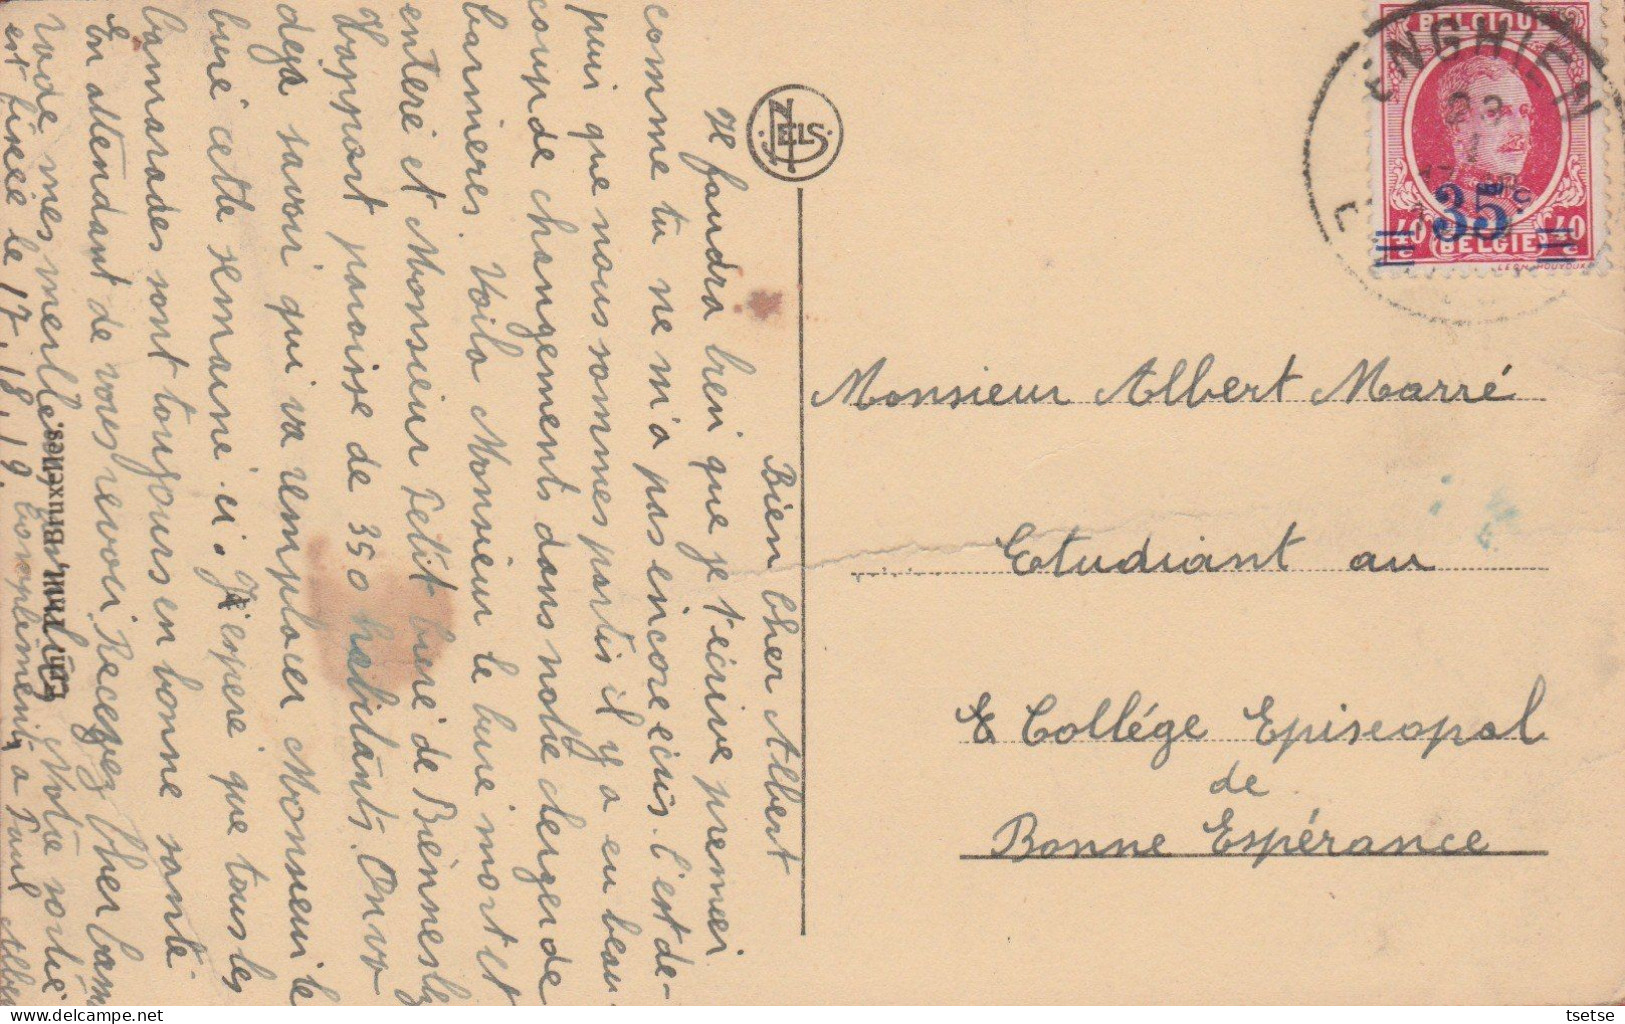 Bien cher Albert
Il faudra bien que je t'écrive premier
comme tu ne m'a pas encore écris. C'est de-
puis que nous sommes partis il y a eu beau-
coup de changements dans notre clerger de
barrnières. Voila Monsieur le curé mort et
enteré et Monsieur Petit curé de Biènnes lez
Happart paroisse de 350 habitants. On va
deja savoir qui va remplacer Monsieur le
curé cette semaine ci. J'espere que tous les
Camarades sont toujours en bonne santé
En attendant de vous revoir, Recevez cher Cam
rade mes meilleurs Notre sortie
est fixée le 17. 18. 19. Compléments a Paul Alber
NELS
Bruxelles.
BELGIQUE
ENGHIEN
35c
40c 40c
BELGIE
Monsieur Albert Marré
Etudiant au
Collége Episcopal
de
Bonne Espérance
tsetse
delcampe.net